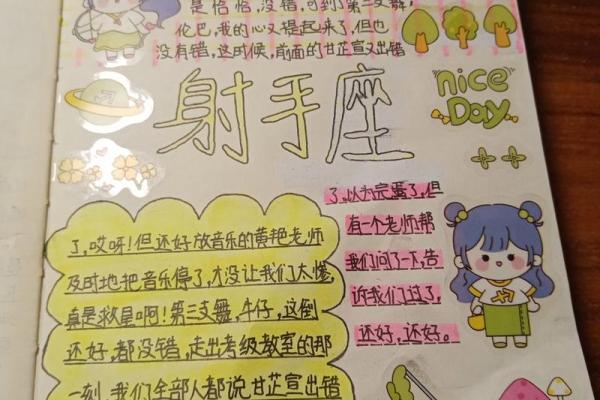 是恰恰,没错,可到第三支舞,
伦巴,我的心又提起来了,但也
没有错,这时候,前面的甘芷宣又出错
射手座
nice
Day
了,哎呀!但还好放音乐的黄艳老师
及时地把音乐停了,才没让我们太惨,
真是救星啊!第三支舞,牛仔,这倒
还好,都没错,走出考级教室的那
一刻,我们全部人都说甘芷宣出错
了,以为完蛋了,但
有一个老师帮
我们问了一下,告
诉我们过了,
还好,还好。